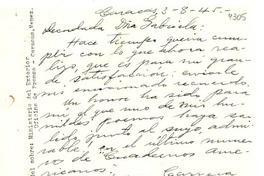 Caracas, 3-8-45.-
4305
Recordada Dña Gabriela:
Hace tiempo quería cumplir
con lo que ahora realizo,
que es para mí grande
satisfacción: enviarle
mi emocionado recuerdo.
Un honor ha sido para
mí el que uno de mis humildes
poemas haya salido
junto al suyo, admirable,
en el último número
de "Cuadernos Americanos".
del sobre: Ministerio del Interior
Oficina de Prensa - Caracas, Venez.